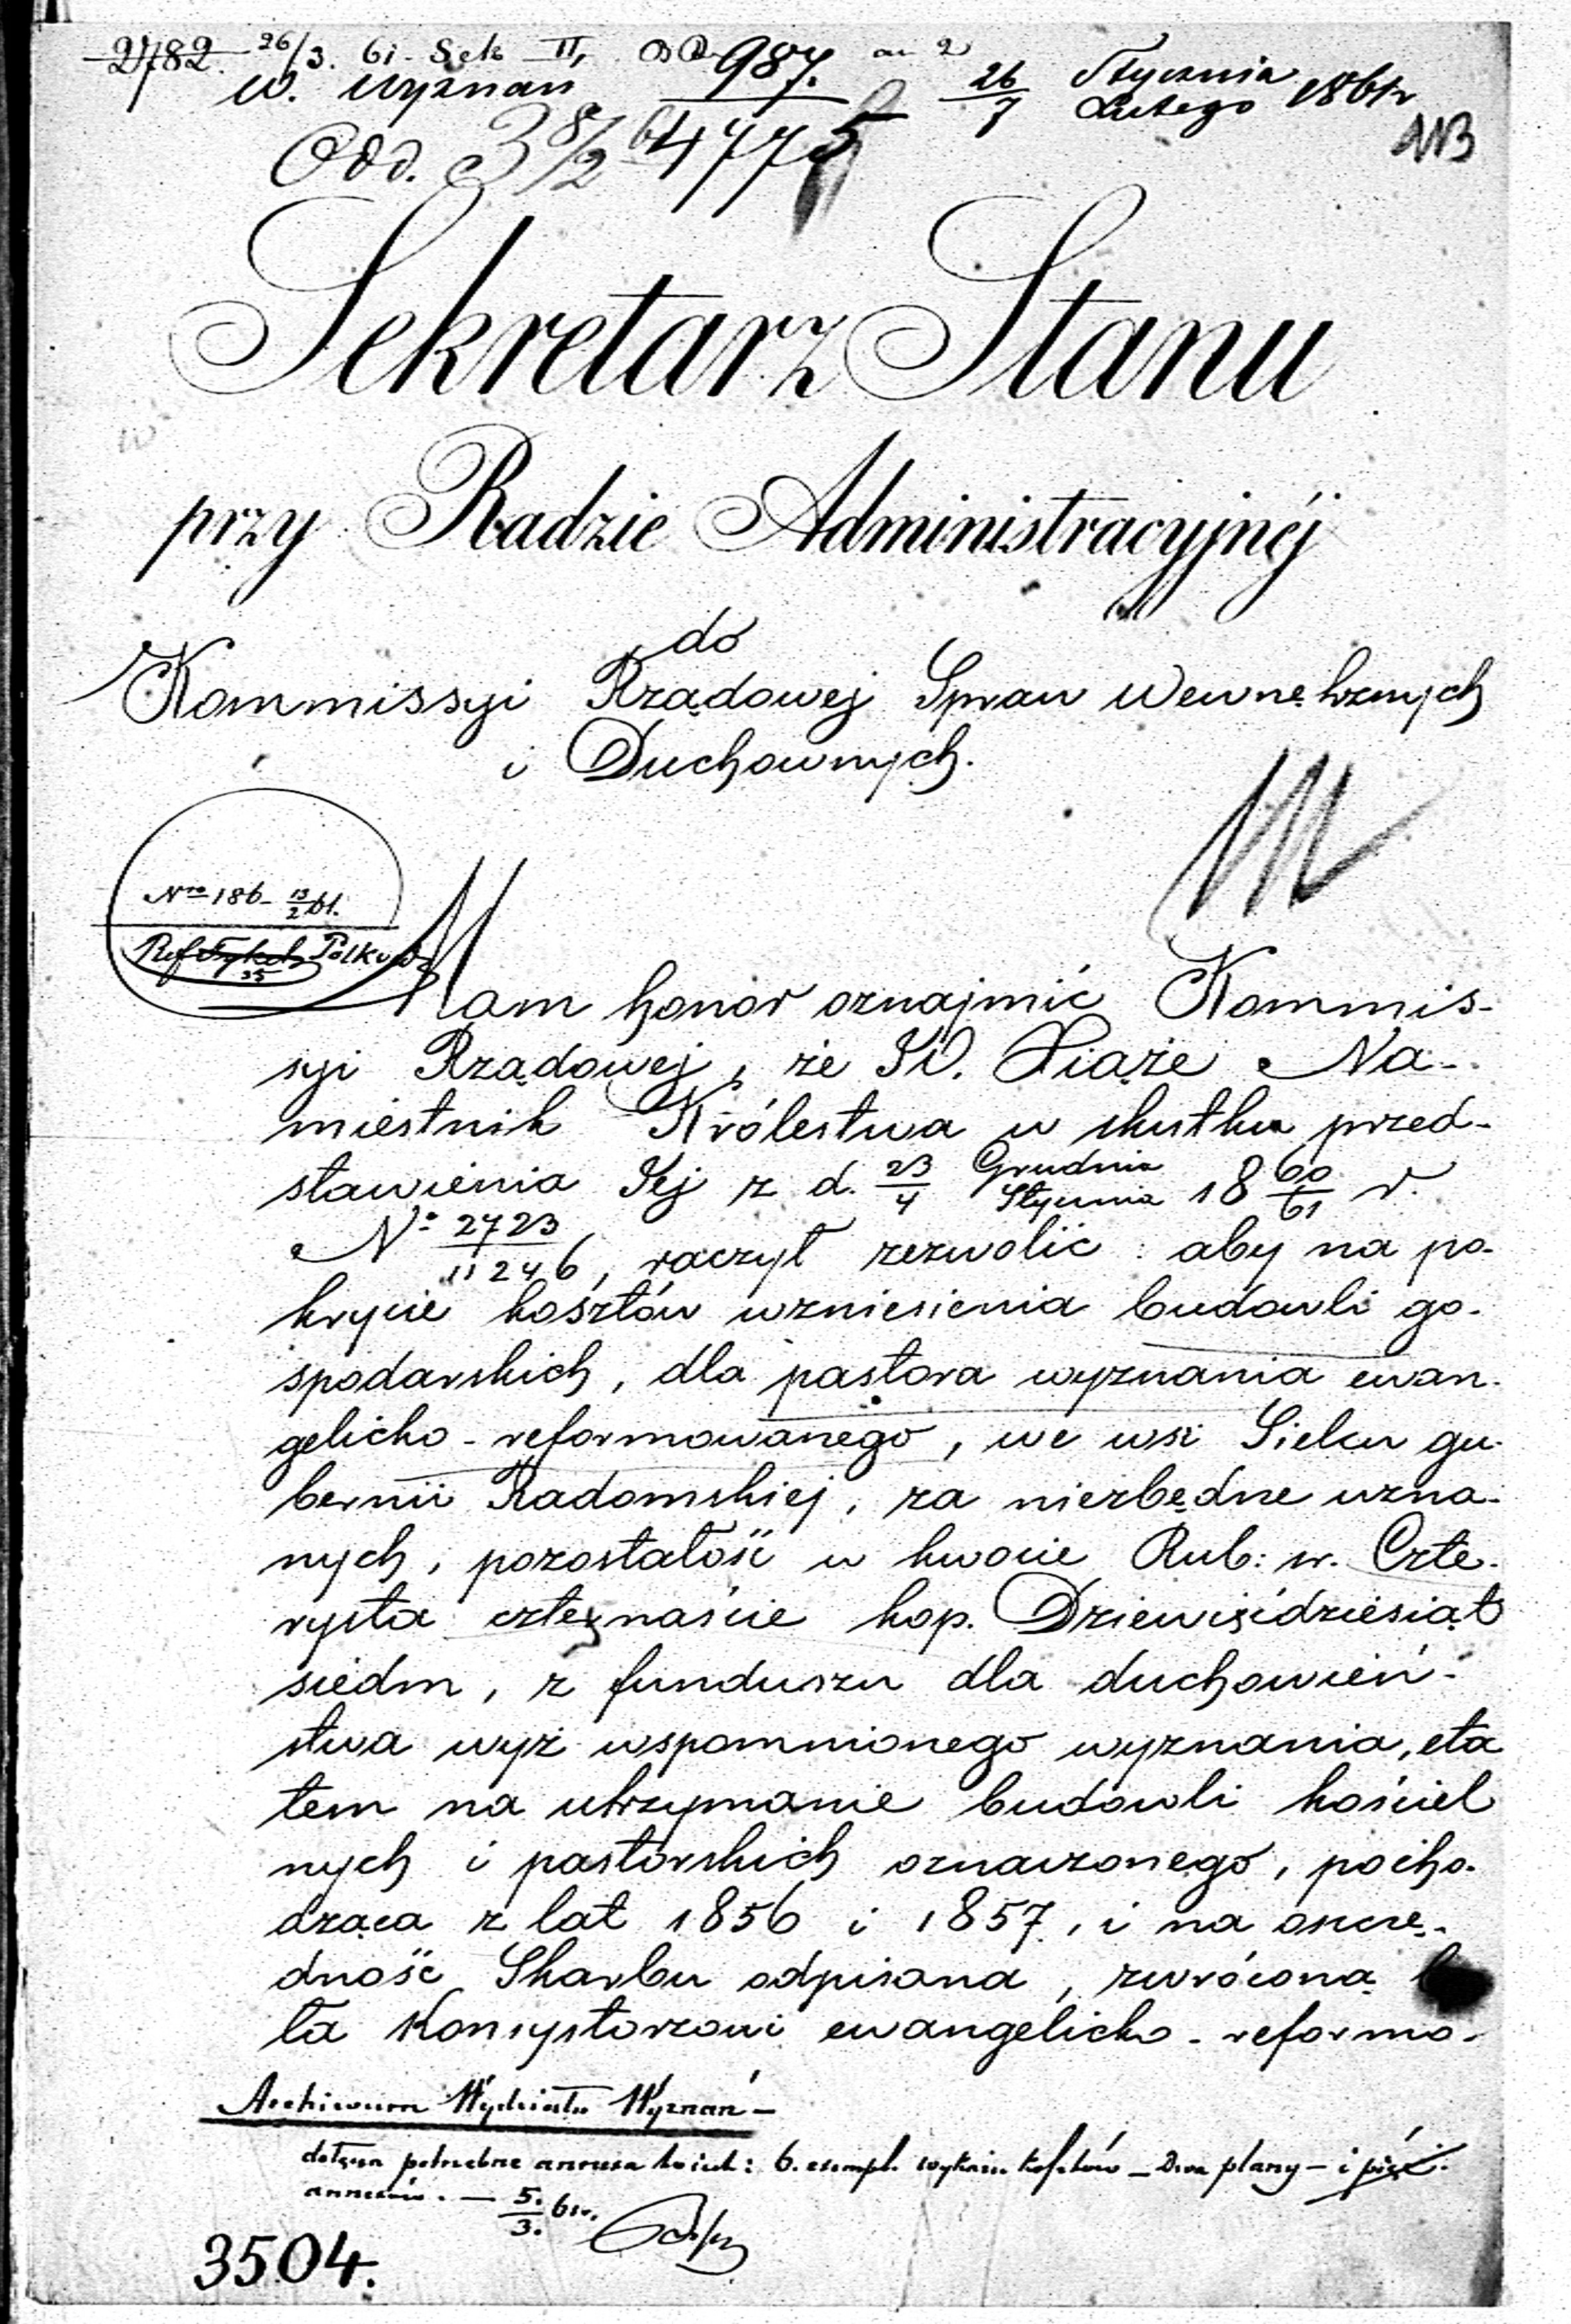 2782. 26/3. 61. Sek II, 987.
W. Wyznań 26/7 Stycznia/Lutego 1861 r
Odd. 3 8/2 61 4775
113
Sekretarz Stanu
przy Radzie Administracyjnéj
do
Kommissyi Rządowej Spraw Wewnętrznych
i Duchownych.
Nro 186 - 13/2 61.
Ref
Mam honor oznajmić Kommis-
syi Rządowej, że JO. Xiąże Na-
miestnik Królestwa w skutku przed-
stawienia Jej z d. 23/4 Grudnia/Stycznia 18 60/61 r.
No 2723/11246, raczył zezwolić: aby na po-
krycie kosztów wzniesienia budowli go-
spodarskich, dla pastora wyznania ewan-
gelicko-reformowanego, we wsi Sielcu gu-
bernii Radomskiej, za niezbędne uzna-
nych, pozostałość w kwocie Rub: sr. Czte-
rysta czternaście kop. Dziewięćdziesiąt
siedm, z funduszu dla duchowień-
stwa wyż wspomnionego wyznania, eta
tem na utrzymanie budowli kościel
nych i pastorskich oznaczonego, pocho-
dząca z lat 1856 i 1857, i na oszczę-
dność Skarbu odpisana, zwróconą
ła Konsystorzowi ewangelicko-reformo-
Archiwum Wydziału Wyznań -
dołącza potrzebne : 6. exempl. wykazu kosztów - Dwa plany - i pięć
annexów. - 5./3. 61r.
3504.